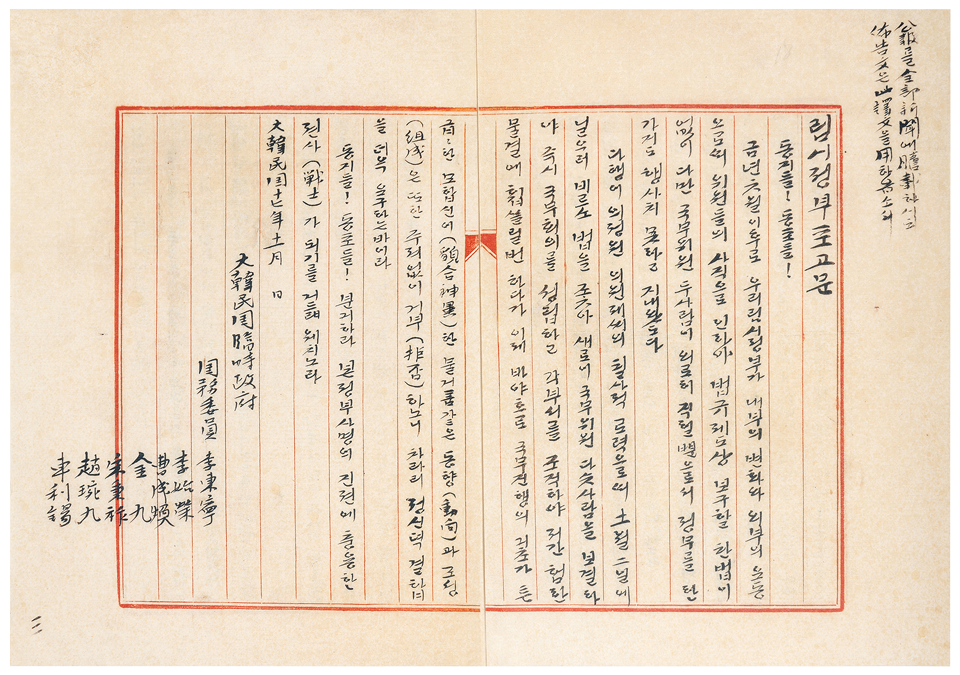 公報를全部新聞에謄載하시고
佈告文은此譯文을用하옵소서
림시정부포고문
동지들! 동포들!
금년 이후로 우리림시정부가 내부의 변화와 외부의 운동
위원들의 사직으로 인하야 법규 보구할 한법이
없어 다만 국무위원 두사람이 외로히 직힐뿐으로서 정무를 단
가지도 행사치 못하고 지내왓도다
다행이 의원 의원제씨의 필사적 로력으로써 十월二일에
닐으러 비로소 법을 조츠아 새로이 국무위원 다슷사람을 보결하
야 즉시 국무회의를 성립하고 각부서를 조직하야 저간 험한
물결에 휩쓸릴번 하다가 이제 바야흐로 국무진행의 긔초가 튼
한 모합신이(貌合神異)한 물거품같은 동향(動向)과 조성
(組成)은 또한 주저없이 거부(拒否)하노니 차라리 정신덕 결합
을 더욱 요구하는바이라
동지들! 동포들! 분긔하라 본정부사명의 진전에 충용한
전사(戰士)가 되기를 거듭웨치노라
大韓民國十七年十一月 日
大韓民國臨時政府
國務委員 李東寧
李始榮
曹成煥
金九
宋秉祚
趙琬九
車利錫